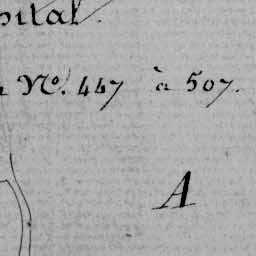 pital.
Nº. 447 à 507.
A